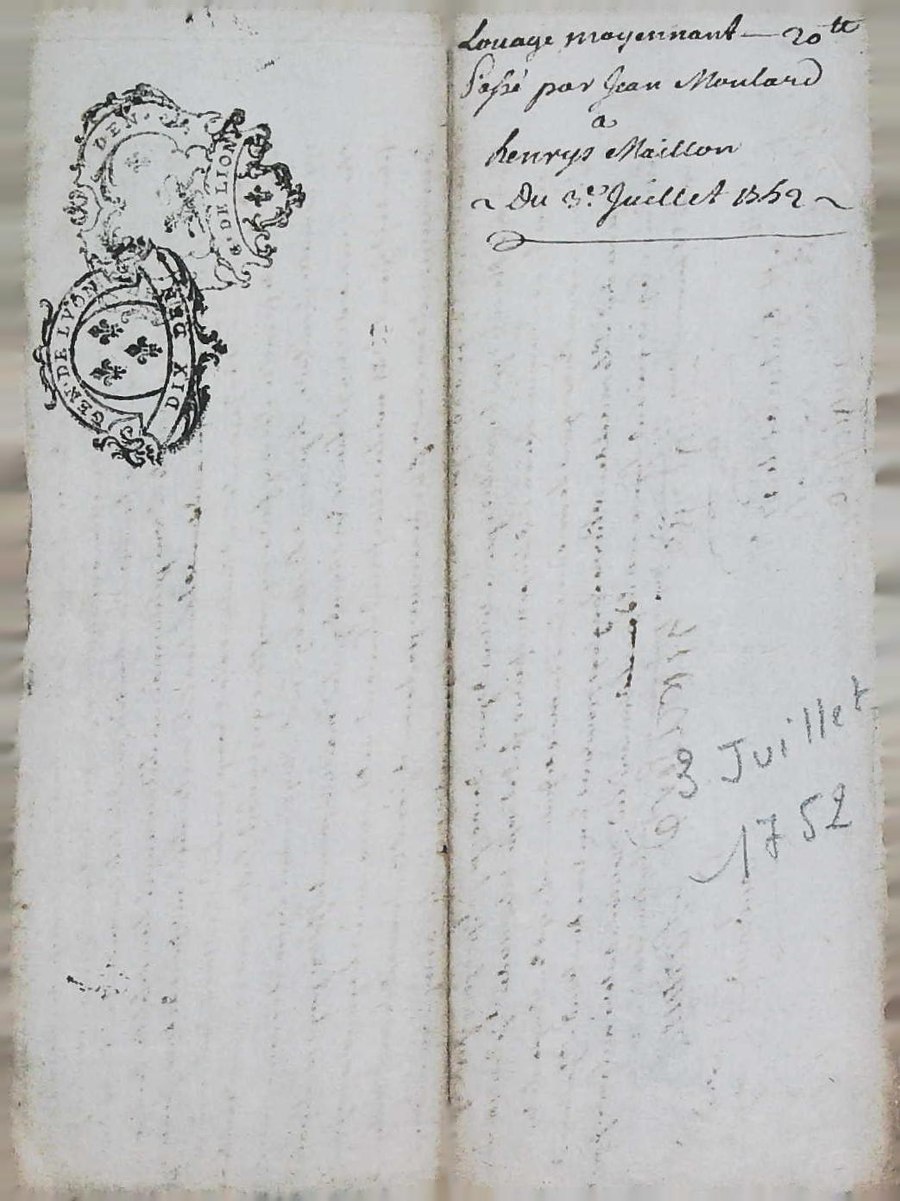 DEN.
DE LION
GEN. DE LYON
DIX DEN
Louage moyennant — 20tt
Passé par Jean Moulard
a
henrys Maillon
~ Du 3e. Juillet 1752 ~
3 Juillet
1752